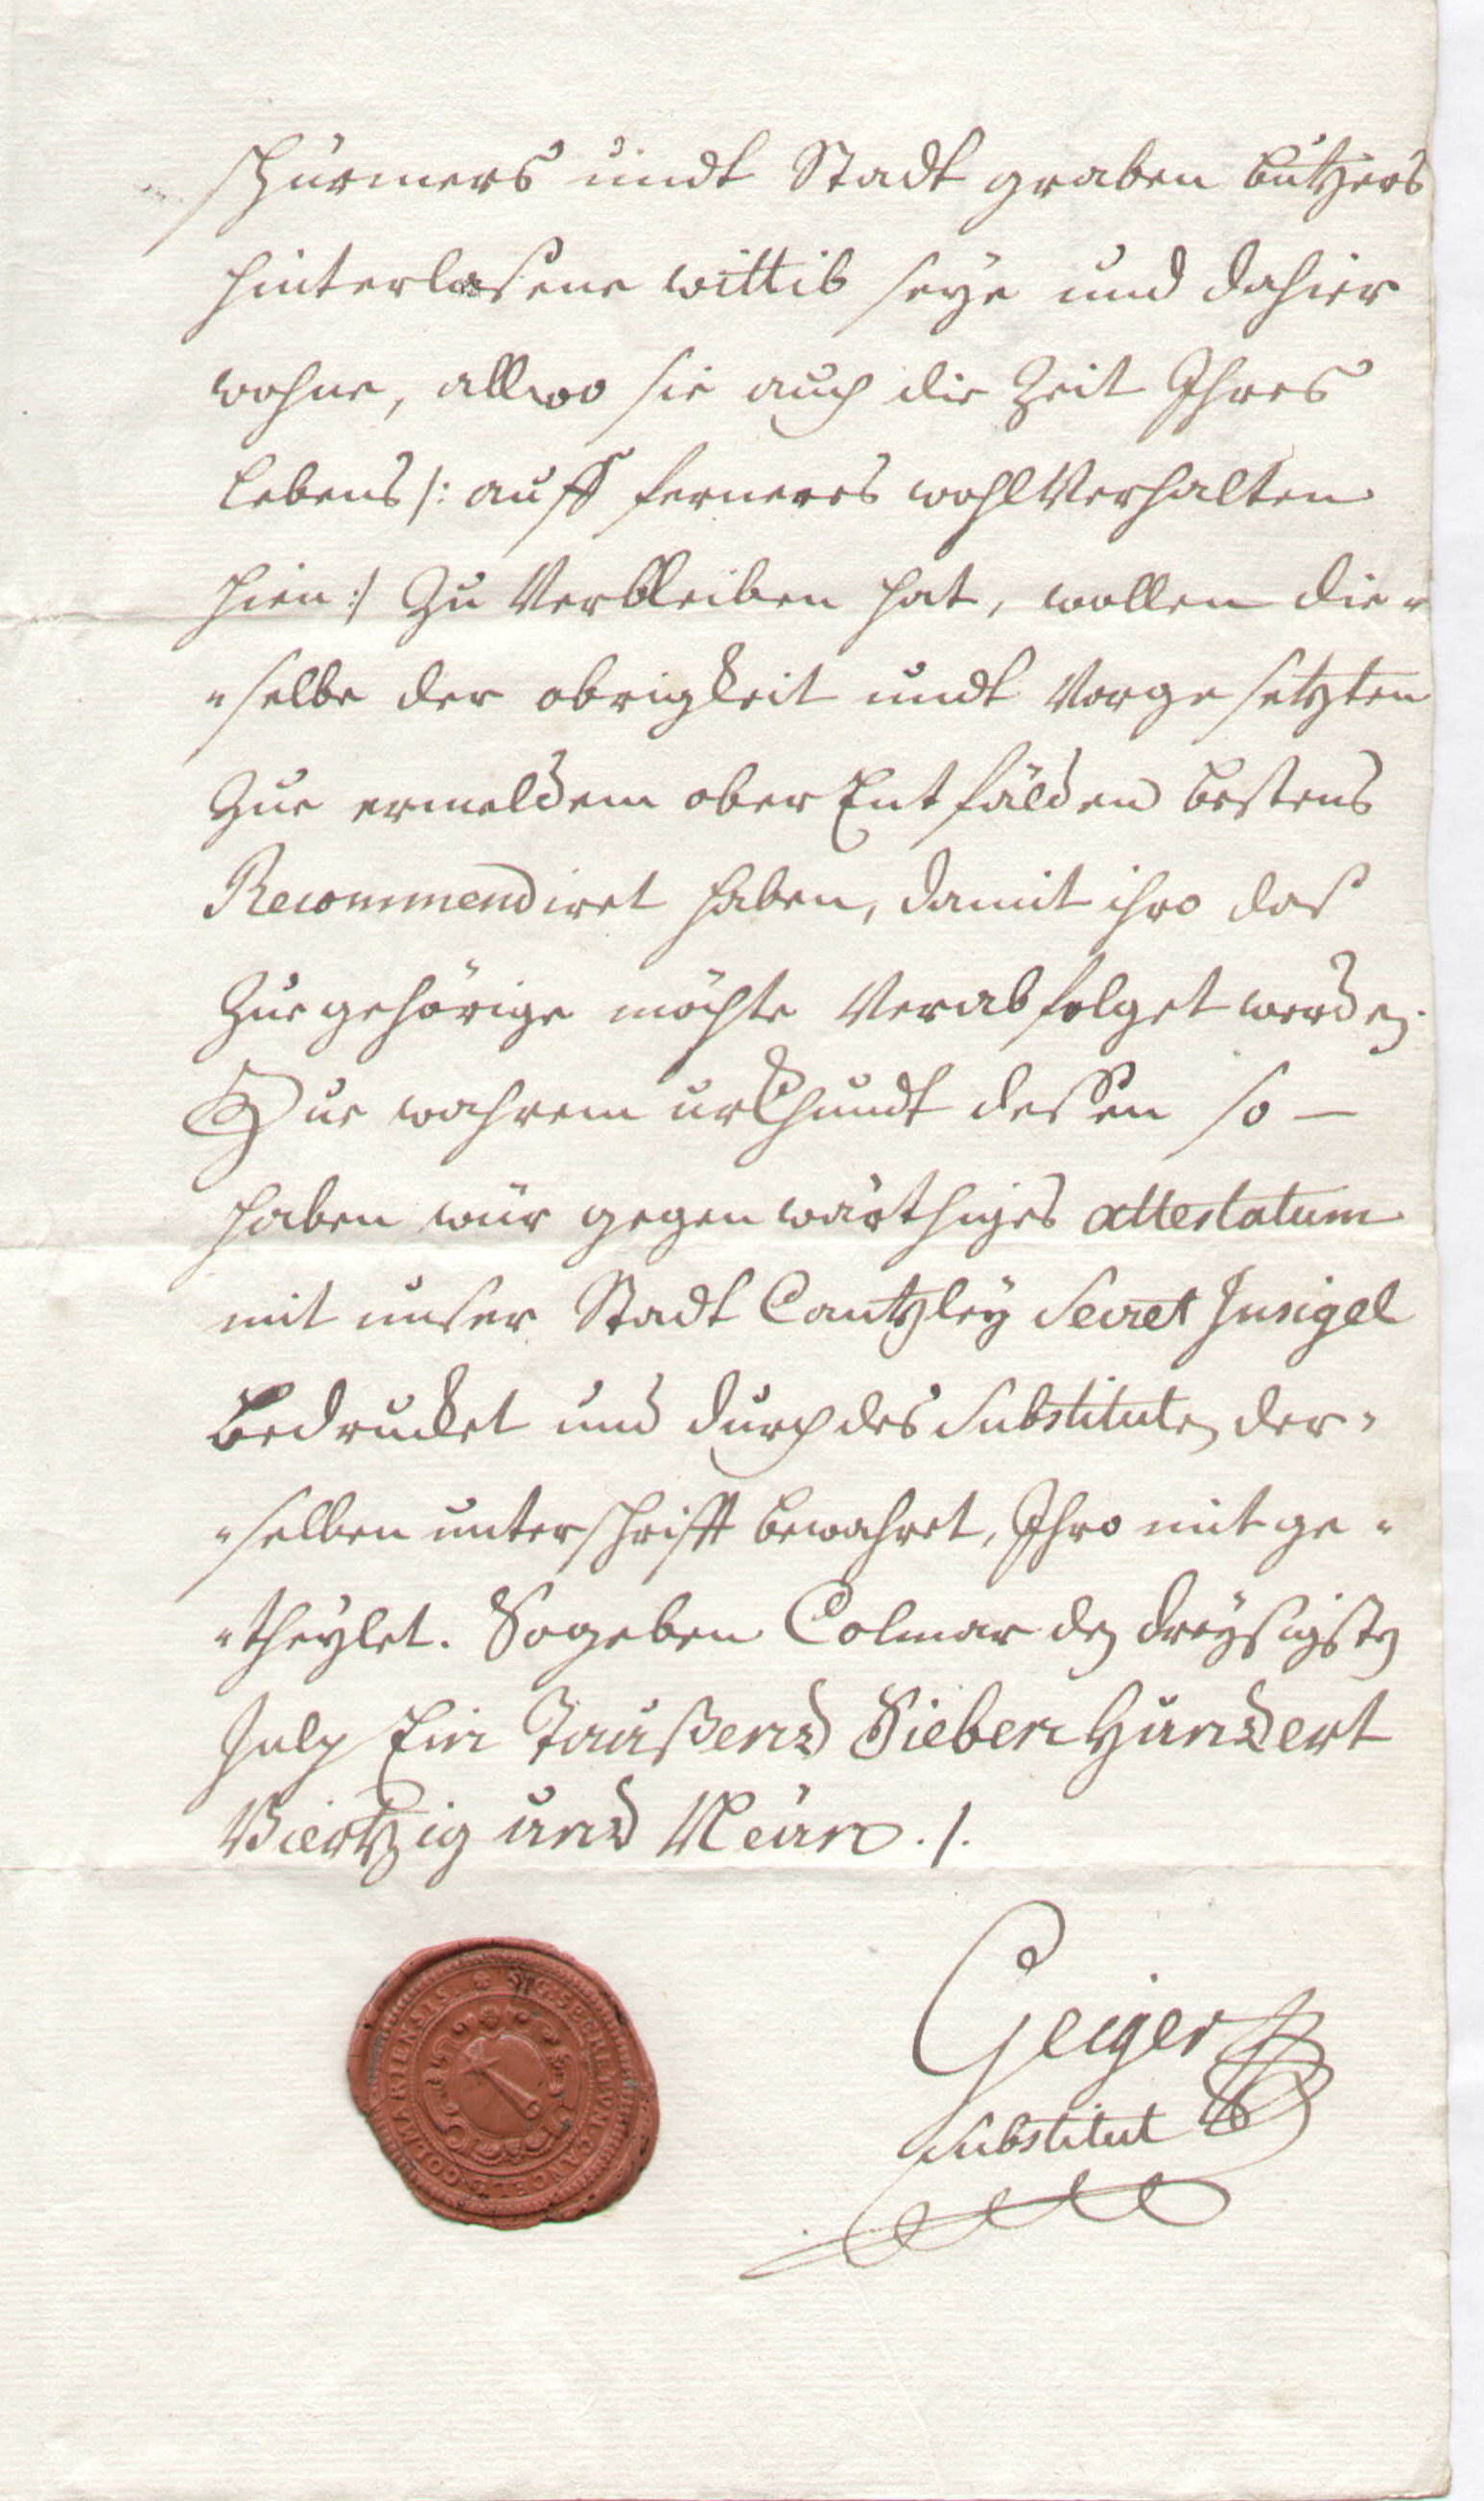 schürmers undt Stadt graben butzers
hinterlasene wittib seye und dahier
wohne, allwo sie auch die Zeit Ihres
lebens /: auff ferneres wohlVerhalten
hien :/ Zu Verbleiben hat, wollen die„
„selbe der obrigkeit undt Vorgesetzten
Zue ermeldem ober Entfälden bestens
Recommendiret haben, damit ihro das
Zuegehörige möchte Verabfolget werden.
Zue wahrem urkhundt dessen so —
haben wür gegenwärthiges attestatum
mit unser Stadt Cantzley Secret Insigel
bedrucket und durch des Substituten der„
„selben unterschrifft bewahret, Ihro mitge„
„theylet. So geben Colmar den dreysigsten
July Ein Taußend Sieben Hundert
Viertzig und Neün ./.
Geiger
Substitut
COLMARIENSIS